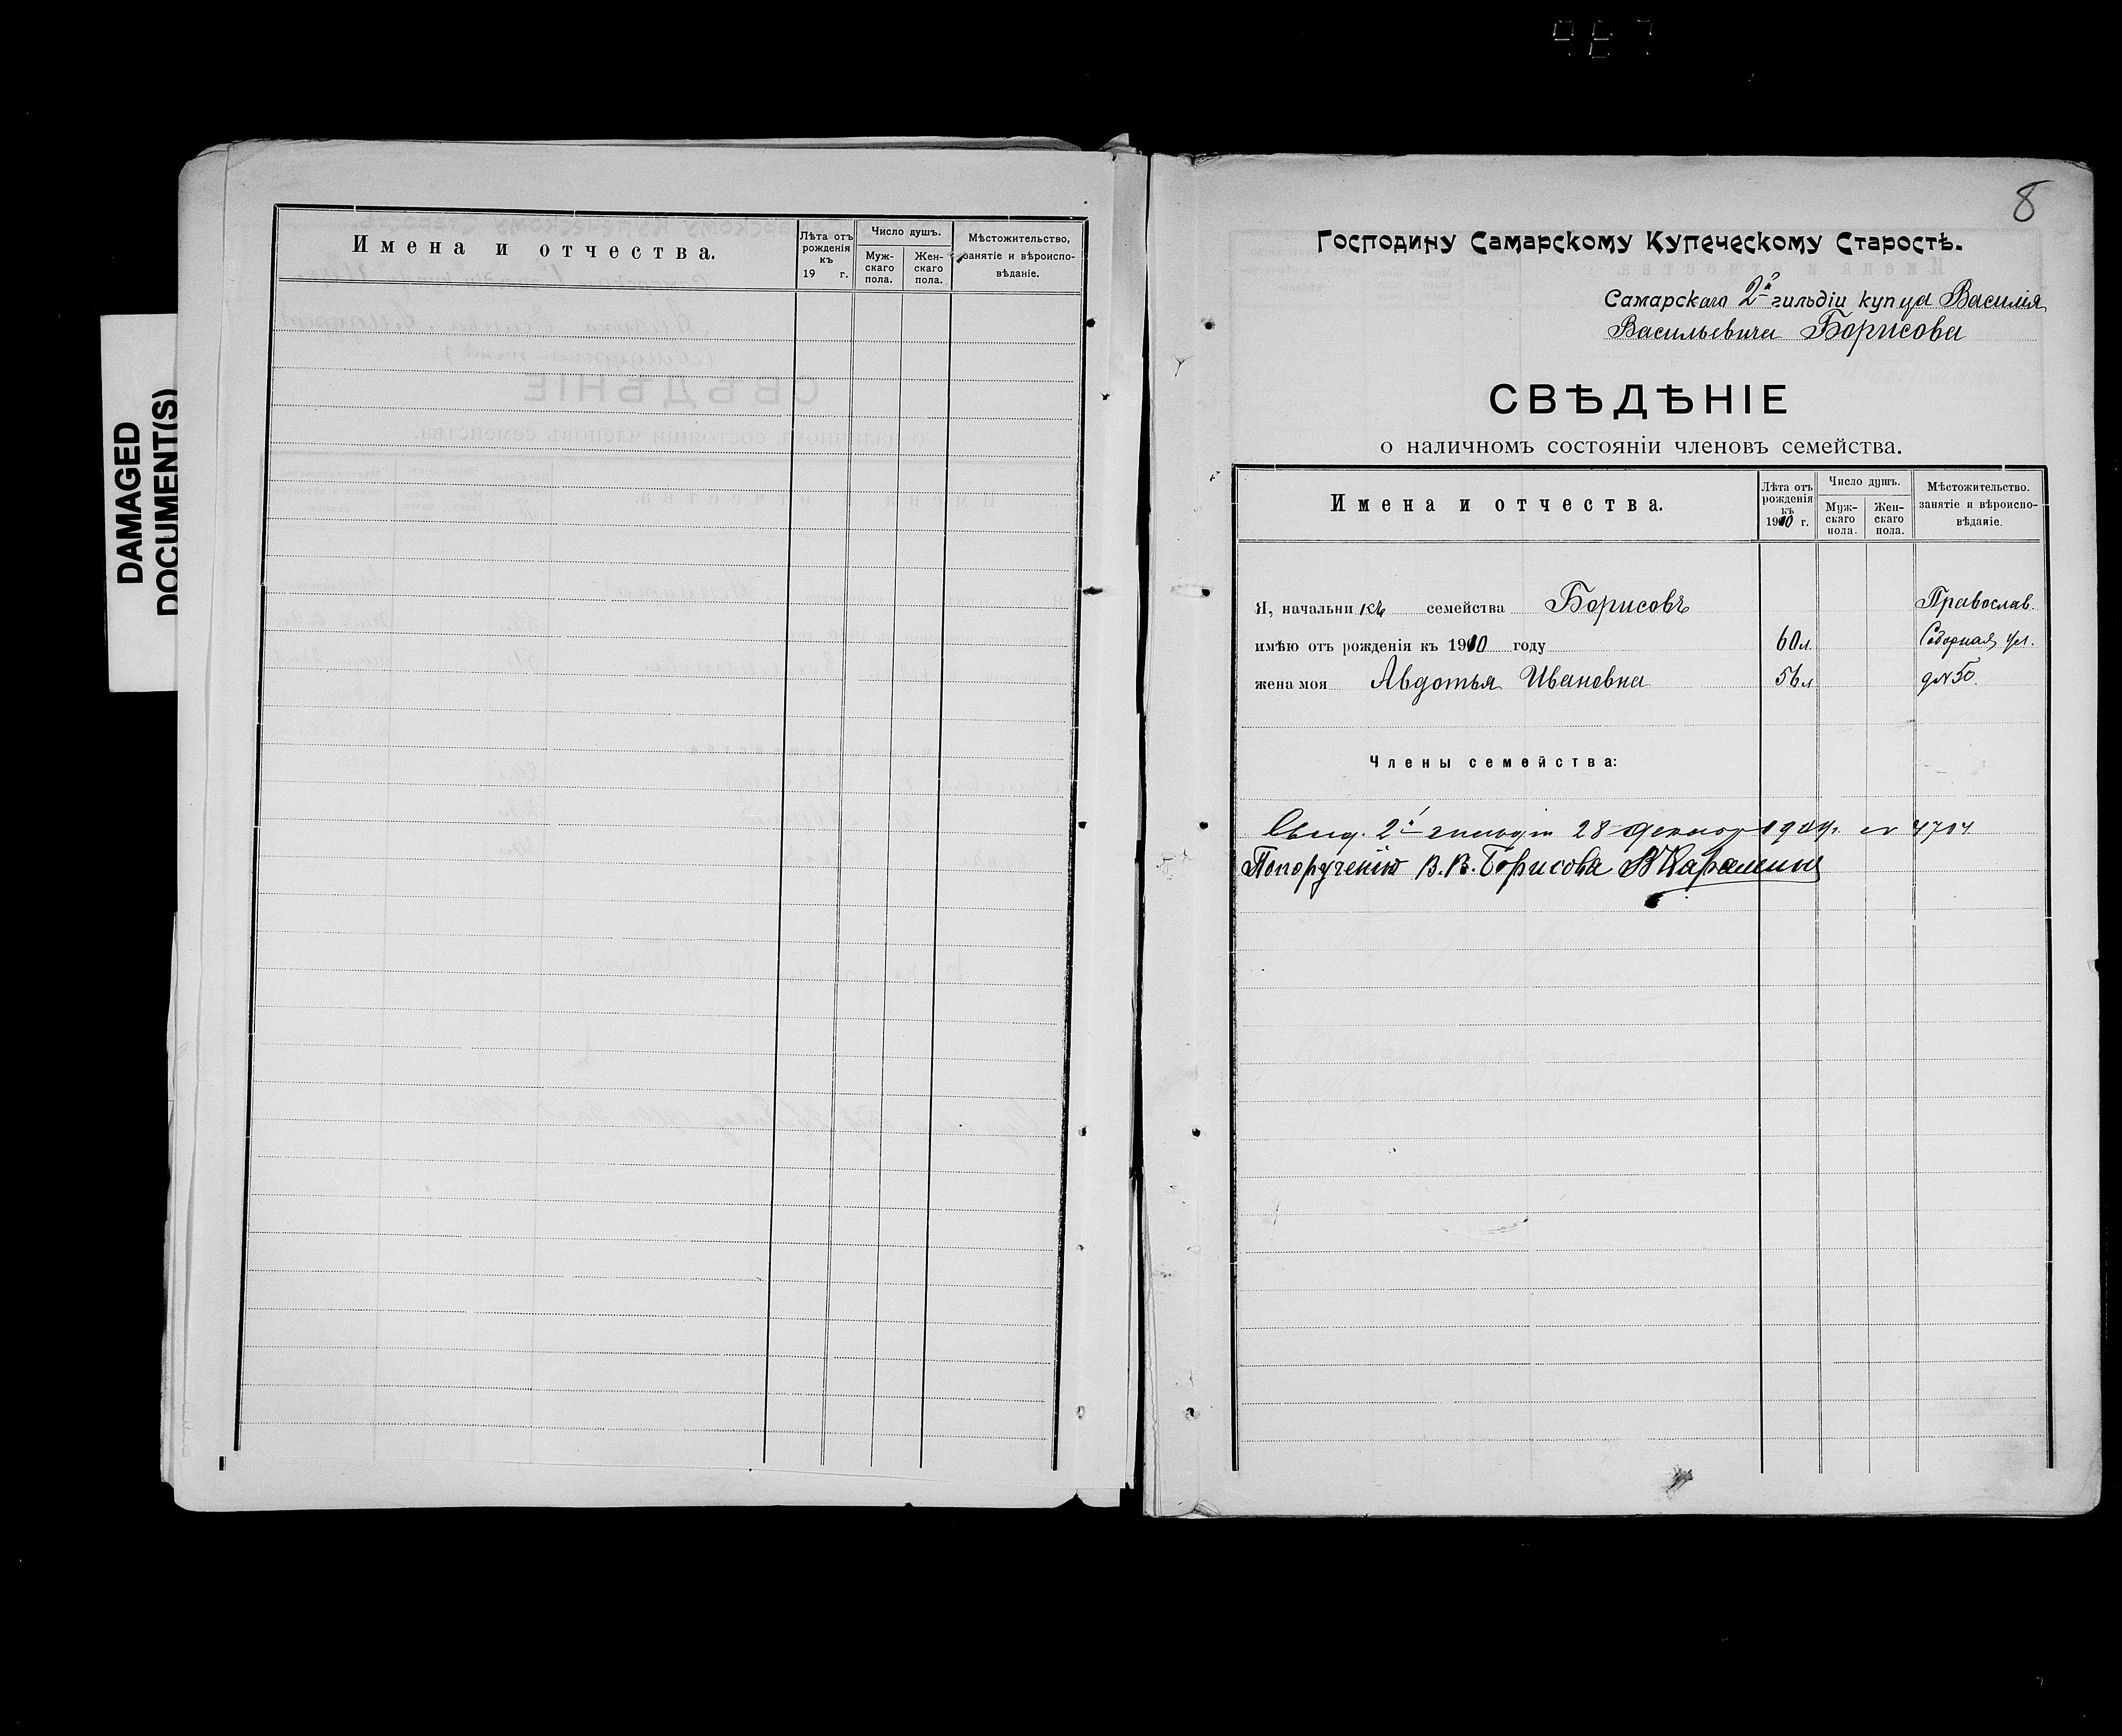 DAMAGED
DOCUMENT(S)
Имена и отчества.
Лѣта отъ рожденія къ 19 г.
Число душъ.
Муж-
скаго
пола.
Жен-
скаго
пола.
Мѣстожительство,
занятіе и вѣроиспо-
вѣданіе.
8
Господину Самарскому Купеческому Старостѣ.
Самарскаго 2й гильдіи купца Василія
Васильевича Борисова
СВѢДѢНІЕ
о наличномъ состояніи членовъ семейства.
Имена и отчества.
Лѣта отъ
рожденія
къ
1910 г.
Число душъ.
Муж-
скаго
пола.
Жен-
скаго
пола.
Мѣстожительство.
занятіе и вѣроиспо-
вѣданіе.
Я, начальникъ семейства Борисовъ Православ.
имѣю отъ рожденія къ 1910 году 60 л. Соборная ул.
жена моя Авдотья Ивановна 56 л. д № 50.
Члены семейства:
Свид. 2й гильдіи 28 декабр 1909 г. №
По порученію В. В. Борисова